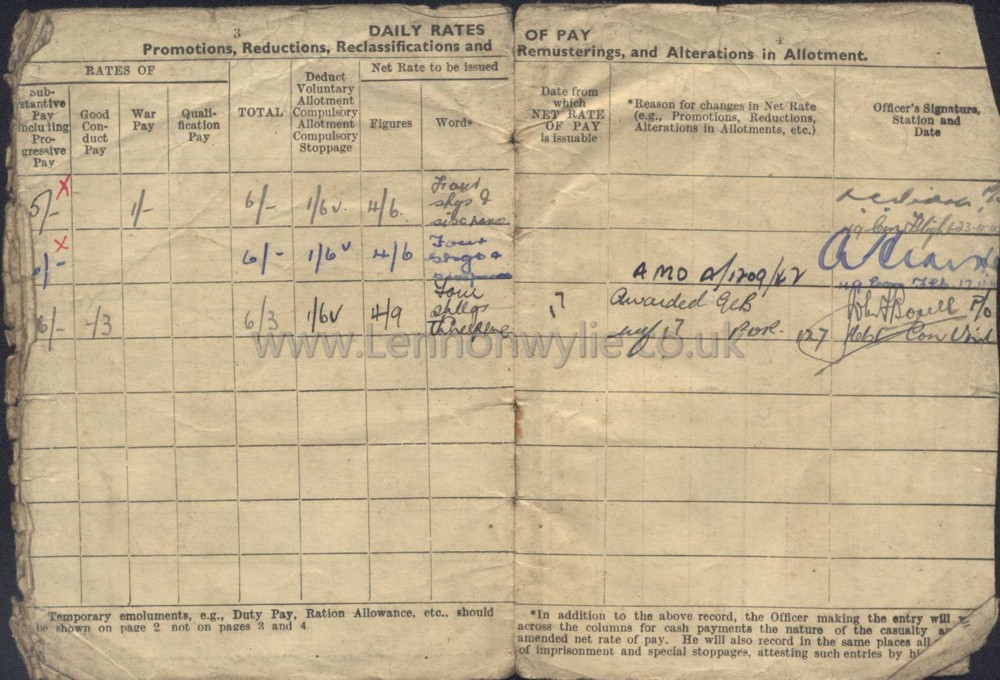 3
DAILY RATES
Promotions, Reductions, Reclassifications and
RATES OF
Sub-
stantive
Pay
including
Pro-
gressive
Pay
Good
Con-
duct
Pay
War
Pay
Quali-
fication
Pay
TOTAL
Deduct
Voluntary
Allotment
Compulsory
Allotment
Compulsory
Stoppage
Net Rate to be issued
Figures
Words
5/- x 1/- 6/- 1/6 v. 4/6.
Four
x 6/- 1/6 v 4/6
Four
6/- -/3 6/3 1/6 v 4/9
Four
Temporary emoluments, e.g., Duty Pay, Ration Allowance, etc., should
be shown on page 2 not on pages 3 and 4.
4
OF PAY
Remusterings, and Alterations in Allotment.
Date from
which
NET RATE
OF PAY
is issuable
*Reason for changes in Net Rate
(e.g., Promotions, Reductions,
Alterations in Allotments, etc.)
Officer's Signature,
Station and
Date
AMO A/1209/42
? Awarded GCB
127
www.Lennonwylie.co.uk
*In addition to the above record, the Officer making the entry will
across the columns for cash payments the nature of the casualty
amended net rate of pay. He will also record in the same places all
of imprisonment and special stoppages, attesting such entries by